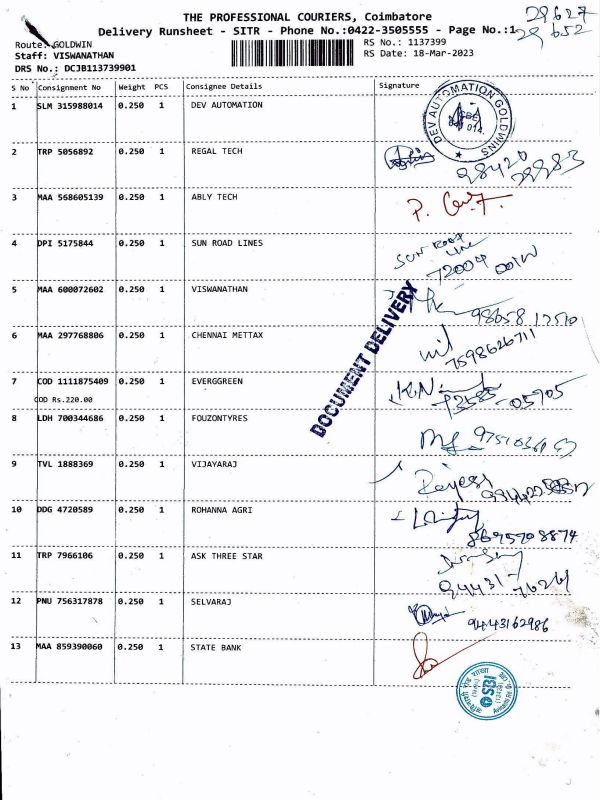 THE PROFESSIONAL COURIERS, Coimbatore
29627
Delivery Runsheet - SITR - Phone No.:0422-3505555 - Page No.:1
29652
Route: GOLDWIN
RS No.: 1137399
Staff: VISWANATHAN
RS Date: 18-Mar-2023
DRS No.: DCJB113739901
S No Consignment No Weight PCS Consignee Details Signature
1 SLM 315988014 0.250 1 DEV AUTOMATION
DEV AUTOMATION GOLDWINS
2 TRP 5056892 0.250 1 REGAL TECH
98420
29983
3 MAA 568605139 0.250 1 ABLY TECH
P.
4 DPI 5175844 0.250 1 SUN ROAD LINES
SUN ROAD
LINE
72004
5 MAA 600072602 0.250 1 VISWANATHAN
98658
DOCUMENT DELIVERY
6 MAA 297768806 0.250 1 CHENNAI METTAX
7598626711
7 COD 1111875409 0.250 1 EVERGGREEN
COD Rs.220.00
73585-05905
8 LDH 700344686 0.250 1 FOUZONTYRES
9 TVL 1888369 0.250 1 VIJAYARAJ
10 DDG 4720589 0.250 1 ROHANNA AGRI
8695708874
11 TRP 7966106 0.250 1 ASK THREE STAR
94431-
76261
12 PNU 756317878 0.250 1 SELVARAJ
9443162986
13 MAA 859390060 0.250 1 STATE BANK
SBI